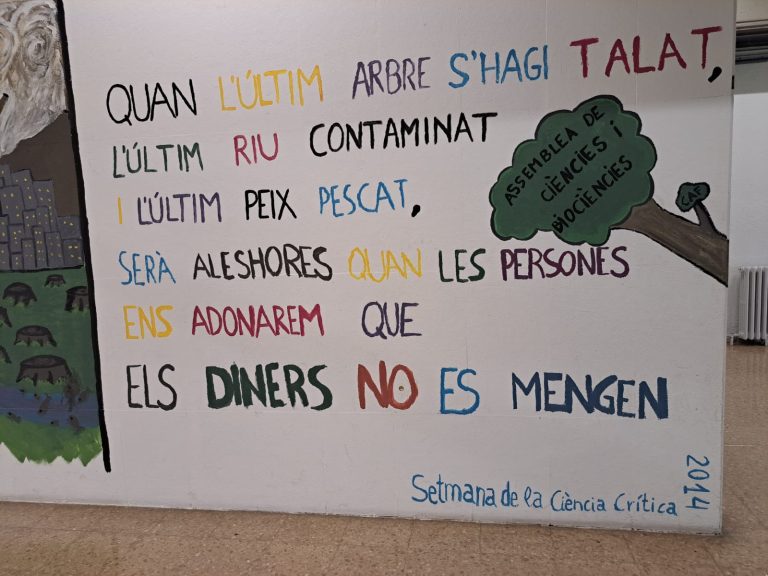 QUAN L'ÚLTIM ARBRE S'HAGI TALAT,
L'ÚLTIM RIU CONTAMINAT
I L'ÚLTIM PEIX PESCAT,
SERÀ ALESHORES QUAN LES PERSONES
ENS ADONAREM QUE
ELS DINERS NO ES MENGEN
ASSEMBLEA DE
CIÈNCIES i
BIOCIÈNCIES
CAF
Setmana de la Ciència Crítica
2014